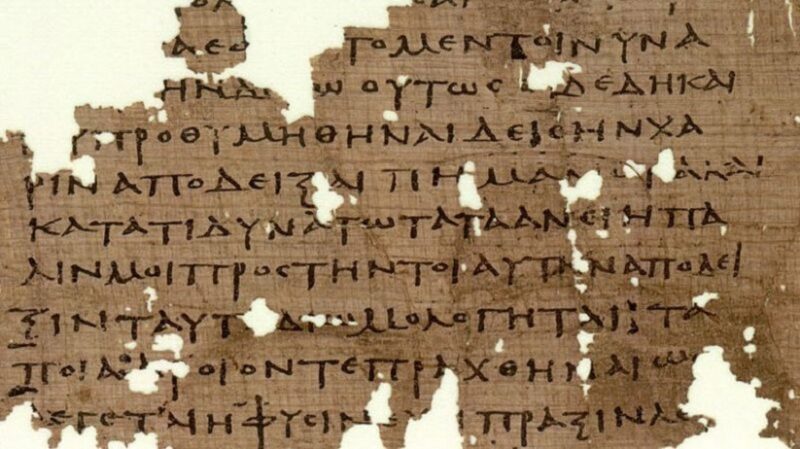 ΤΟΜΕΝΤΟΙΝΥΝΑ
ΗΝΔ Ω ΟΥΤΩΣ ΔΕΔΗΚΑΙ
ΥΠΡΟΘΥΜΗΘΗΝΑΙΔΕΙΣΗΝΧΑ
ΡΙΝΑΠΟΔΕΙΞΑΙΠΗΜΑΛ
ΚΑΤΑΤΙΔΥΝΑΤΩΤΑΤΑΑΝΕΙΗΠΑ
ΛΙΝΜΟΙΠΡΟΣΤΗΝΤΟΙΑΥΤΗΝΑΠΟΔΕΙ
ΞΙΝΤΑΥΤ ΔΙΟΜΟΛΟΓΗΤΑΙ ΤΑ
ΠΟΙΑ ΟΙΟΝΤΕΠΡΑΧΘΗΝΑΙΩΣ
ΛΕΓΕΤΑΙΗΦΥΣΙΝ ΠΡΑΞΙΝΛΕ